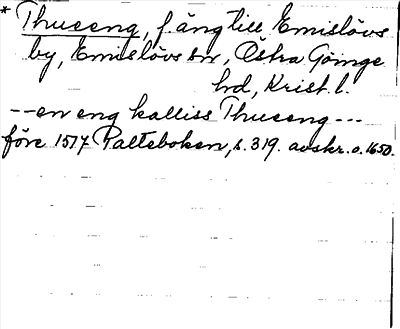 * Thuceng, f. äng till Emislövs
by, Emislövs sn, Östra Göinge
hd, Krist. l.
-- en eng kalliss Thuceng ---
före 1517. Palteboken, s. 319. avskr. o. 1650.